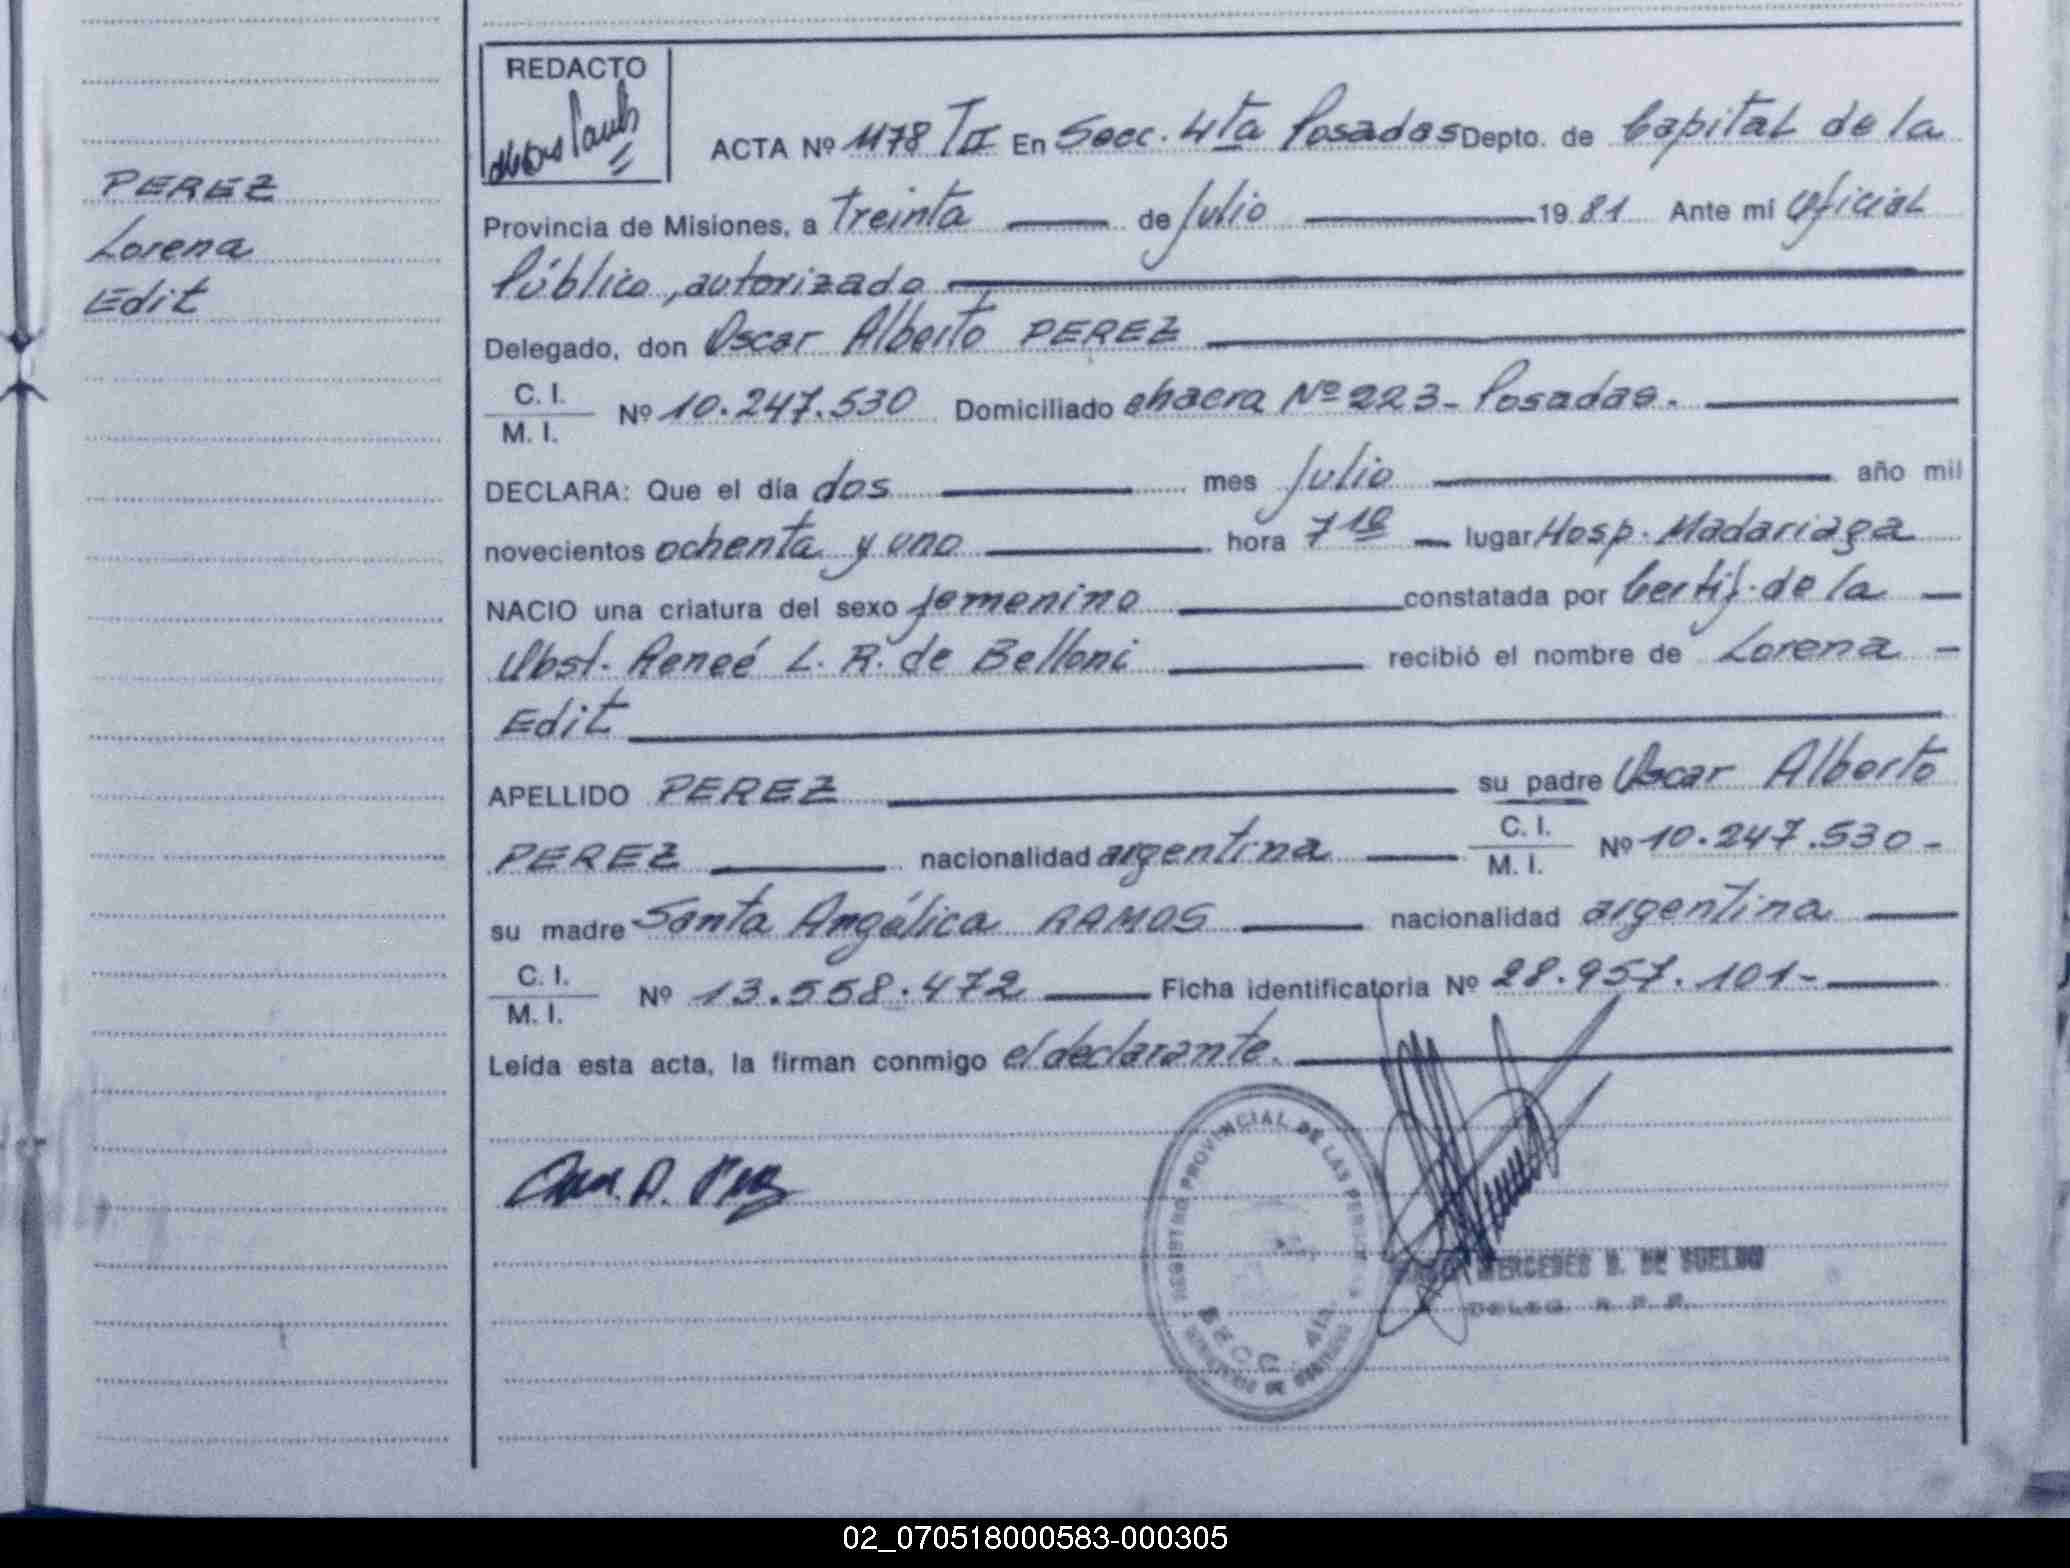 PEREZ
Lorena
Edit
REDACTO
ACTA Nº 1178 TºII En Secc. 4ta Posadas Depto. de Capital de la
Provincia de Misiones, a treinta de Julio 1981 Ante mí Oficial
Público, autorizado
Delegado, don Oscar Alberto PEREZ
C. I.
M. I. Nº 10.247.530 Domiciliado chacra Nº 223 - Posadas.
DECLARA: Que el día dos mes Julio año mil
novecientos ochenta y uno hora 7 10 lugar Hosp. Madariaga
NACIO una criatura del sexo femenino constatada por Certif. de la
Obst. Reneé L. R. de Belloni recibió el nombre de Lorena
Edit
APELLIDO PEREZ su padre Oscar Alberto
PEREZ nacionalidad argentina C. I.
M. I. Nº 10.247.530 -
su madre Santa Angélica RAMOS nacionalidad argentina
C. I.
M. I. Nº 13.558.472 Ficha identificatoria Nº 28.957.101 -
Leída esta acta, la firman conmigo el declarante.
REGISTRO PROVINCIAL DE LAS PERSONAS
SECC. 4ta.
MERCEDES D. DE SUELDO
DELEG. R. P. P.
02_070518000583-000305